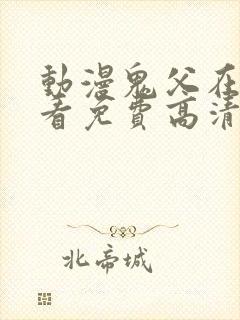 動漫鬼父在
看免費高清
北帝城